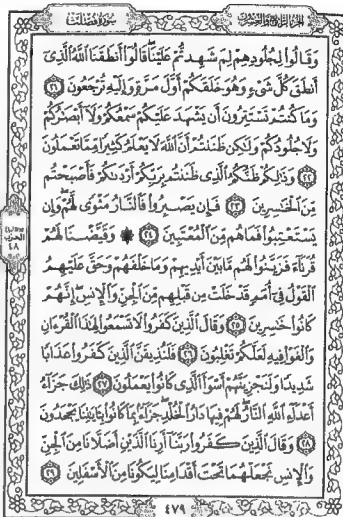 الجزء الرابع والعشرون
سورة فصلت
وَقَالُوا لِجُلُودِهِمْ لِمَ شَهِدتُّمْ عَلَيْنَا قَالُوا أَنطَقَنَا اللَّهُ الَّذِي
أَنطَقَ كُلَّ شَيْءٍ وَهُوَ خَلَقَكُمْ أَوَّلَ مَرَّةٍ وَإِلَيْهِ تُرْجَعُونَ ٢١
وَمَا كُنتُمْ تَسْتَتِرُونَ أَن يَشْهَدَ عَلَيْكُمْ سَمْعُكُمْ وَلَا أَبْصَارُكُمْ
وَلَا جُلُودُكُمْ وَلَٰكِن ظَنَنتُمْ أَنَّ اللَّهَ لَا يَعْلَمُ كَثِيرًا مِّمَّا تَعْمَلُونَ
٢٢ وَذَٰلِكُمْ ظَنُّكُمُ الَّذِي ظَنَنتُم بِرَبِّكُمْ أَرْدَاكُمْ فَأَصْبَحْتُم
مِّنَ الْخَاسِرِينَ ٢٣ فَإِن يَصْبِرُوا فَالنَّارُ مَثْوًى لَّهُمْ وَإِن
يَسْتَعْتِبُوا فَمَا هُم مِّنَ الْمُعْتَبِينَ ٢٤ ۞ وَقَيَّضْنَا لَهُمْ
قُرَنَاءَ فَزَيَّنُوا لَهُم مَّا بَيْنَ أَيْدِيهِمْ وَمَا خَلْفَهُمْ وَحَقَّ عَلَيْهِمُ
الْقَوْلُ فِي أُمَمٍ قَدْ خَلَتْ مِن قَبْلِهِم مِّنَ الْجِنِّ وَالْإِنسِ إِنَّهُمْ
كَانُوا خَاسِرِينَ ٢٥ وَقَالَ الَّذِينَ كَفَرُوا لَا تَسْمَعُوا لِهَٰذَا الْقُرْءَانِ
وَالْغَوْا فِيهِ لَعَلَّكُمْ تَغْلِبُونَ ٢٦ فَلَنُذِيقَنَّ الَّذِينَ كَفَرُوا عَذَابًا
شَدِيدًا وَلَنَجْزِيَنَّهُمْ أَسْوَأَ الَّذِي كَانُوا يَعْمَلُونَ ٢٧ ذَٰلِكَ جَزَاءُ
أَعْدَاءِ اللَّهِ النَّارُ لَهُمْ فِيهَا دَارُ الْخُلْدِ جَزَاءً بِمَا كَانُوا بِآيَاتِنَا يَجْحَدُونَ
٢٨ وَقَالَ الَّذِينَ كَفَرُوا رَبَّنَا أَرِنَا اللَّذَيْنِ أَضَلَّانَا مِنَ الْجِنِّ
وَالْإِنسِ نَجْعَلْهُمَا تَحْتَ أَقْدَامِنَا لِيَكُونَا مِنَ الْأَسْفَلِينَ ٢٩
الحزب
٤٨
٤٧٩